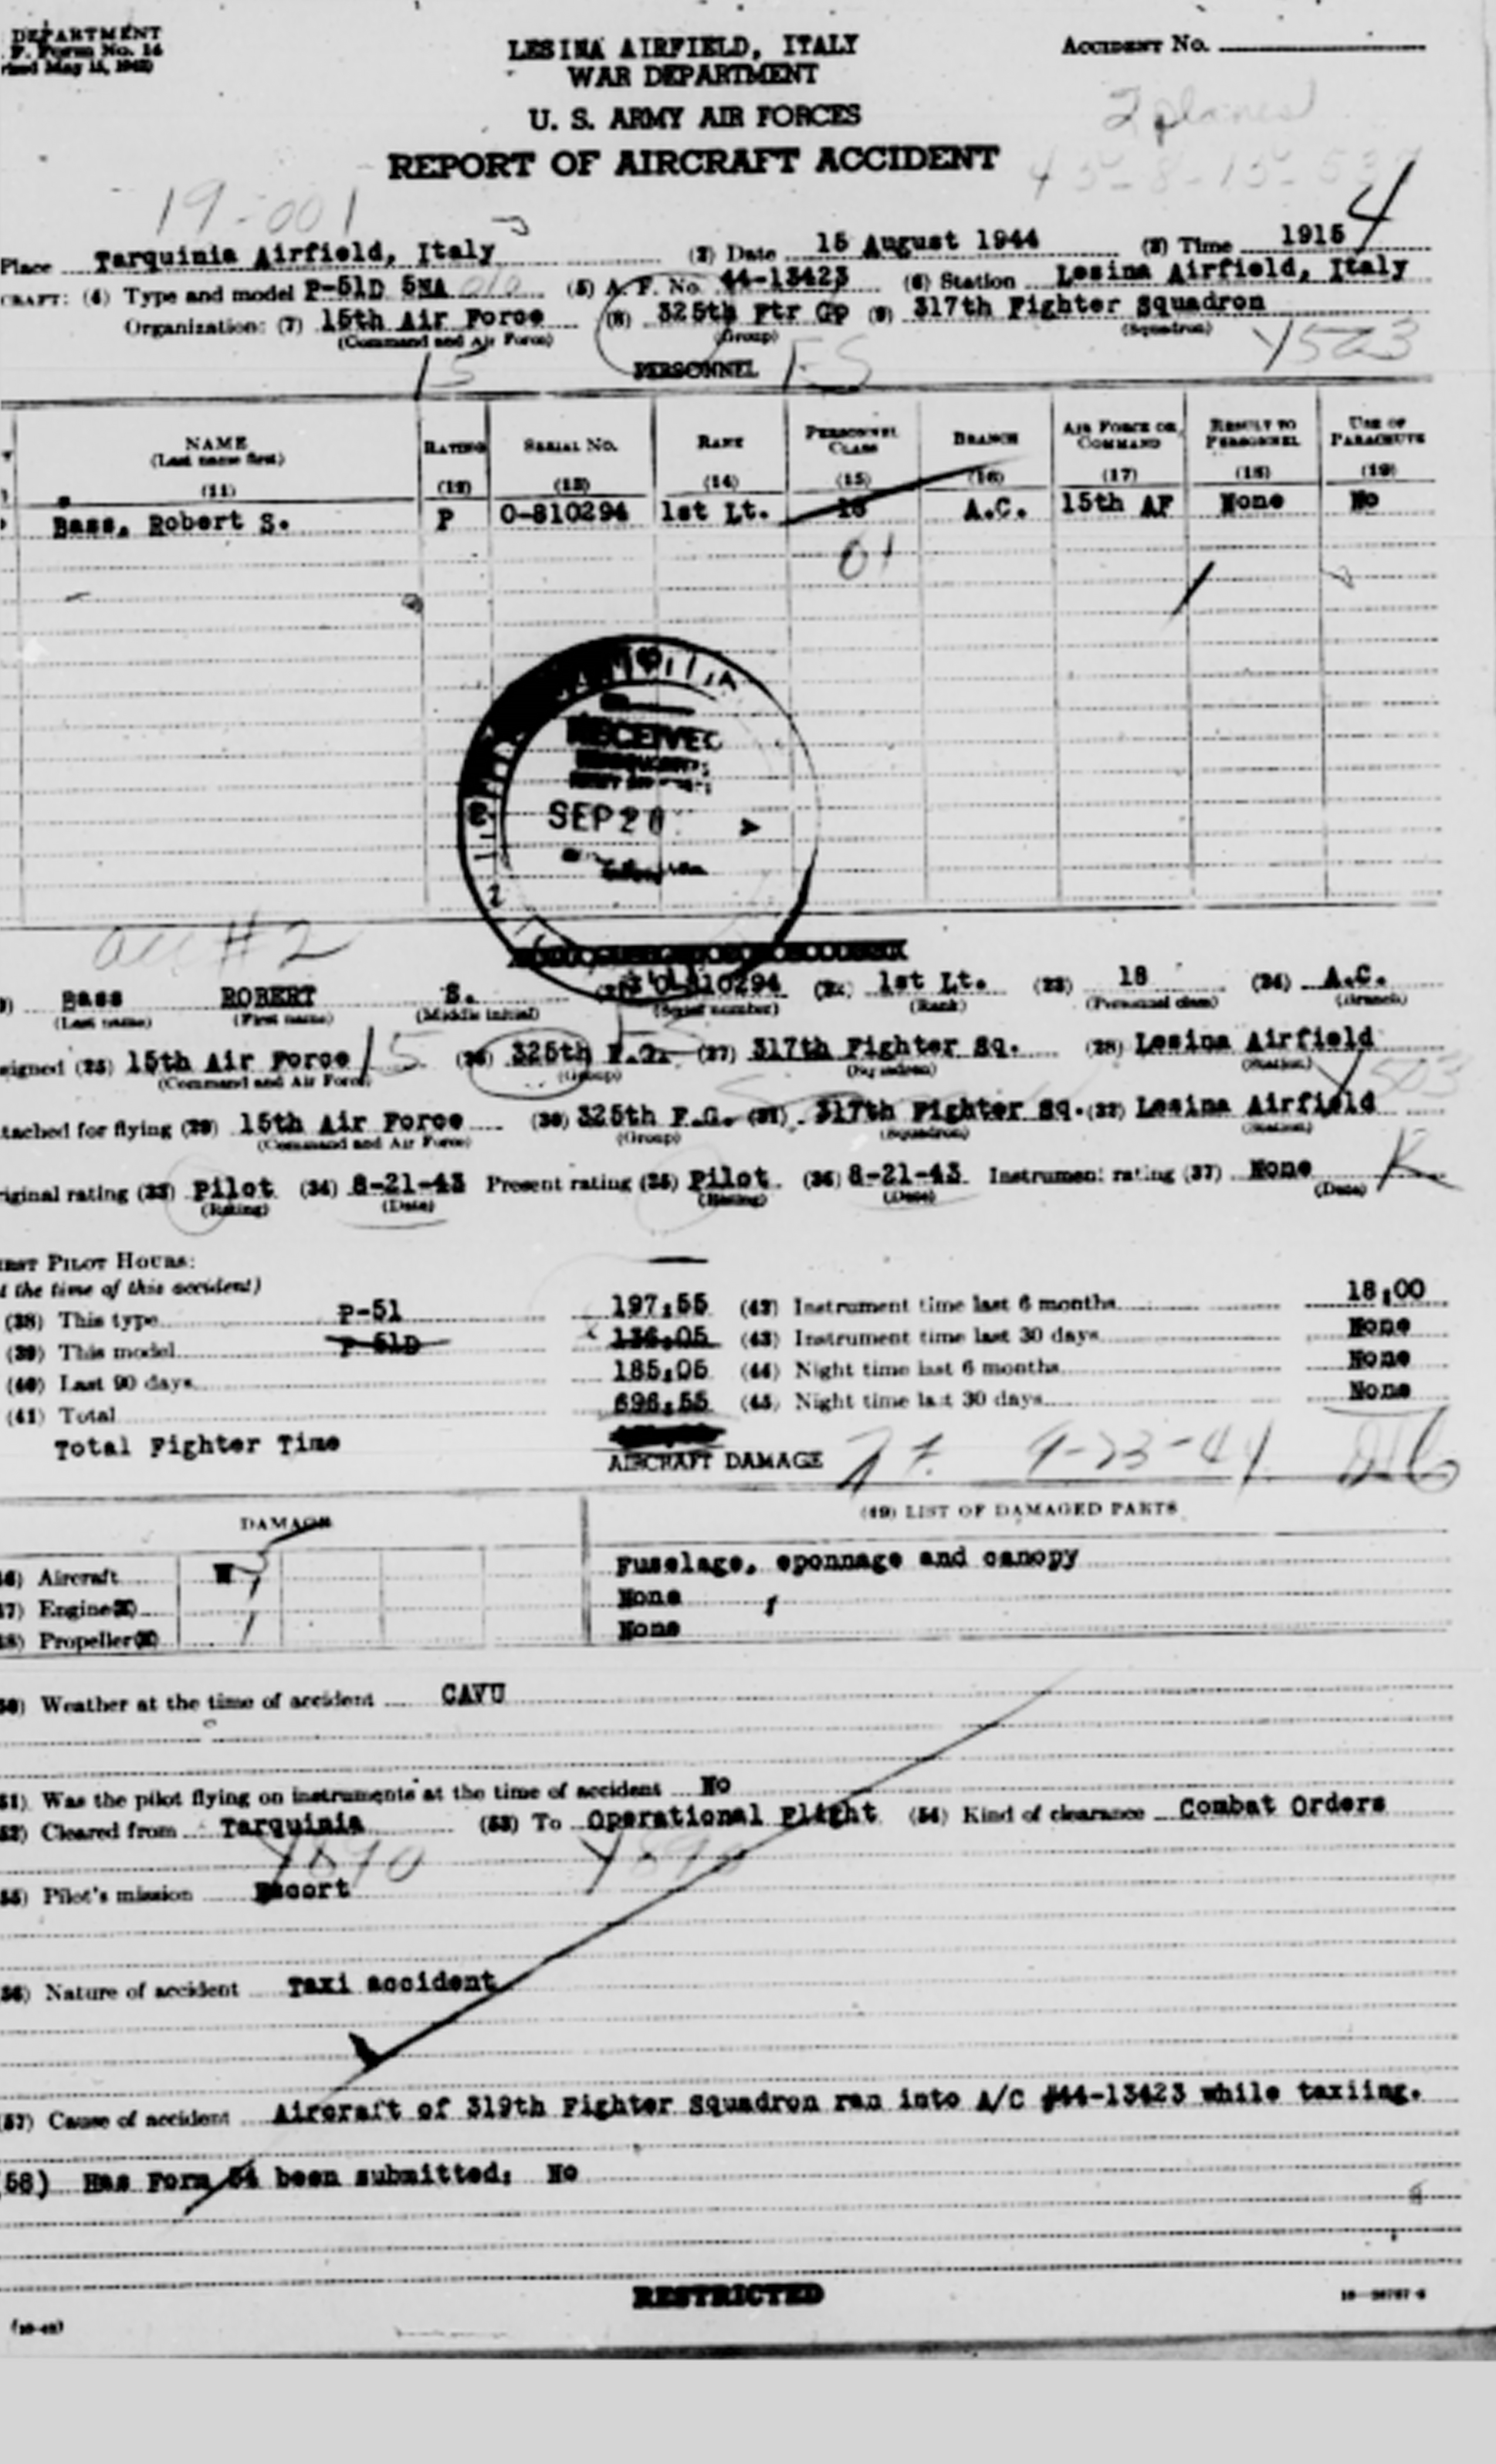 DEPARTMENT
F. Form No. 14
LESINA AIRFIELD, ITALY
WAR DEPARTMENT
U. S. ARMY AIR FORCES
REPORT OF AIRCRAFT ACCIDENT
ACCIDENT No.
2 planes
19-001
Place Tarquinia Airfield, Italy (2) Date 15 August 1944 (3) Time 1915 4
CRAFT: (4) Type and model P-51D 5NA (5) A. F. No. 44-13423 (6) Station Lesina Airfield, Italy
Organization: (7) 15th Air Force (8) 325th Ftr Gp (9) 317th Fighter Squadron
(Command and Air Force) (Group) (Squadron)
15 FS Y523
PERSONNEL
NAME (Last name first) RATING SERIAL No. RANK PERSONNEL CLASS BRANCH AIR FORCE OR COMMAND RESULT TO PERSONNEL USE OF PARACHUTE
(11) (12) (13) (14) (15) (16) (17) (18) (19)
Bass, Robert S. P O-810294 1st Lt. 18 A.C. 15th AF None No
01
RECEIVED
SEP 20
acc #2
Bass ROBERT S. O-810294 1st Lt. (23) 18 (24) A.C.
(Last name) (First name) (Middle initial) (Serial number) (Rank) (Personnel class) (Branch)
signed (25) 15th Air Force 15 (26) 325th F.G. (27) 317th Fighter Sq. (28) Lesina Airfield
(Command and Air Force) (Group) (Squadron) (Station)
tached for flying (29) 15th Air Force (30) 325th F.G. (31) 317th Fighter Sq. (32) Lesina Airfield
(Command and Air Force) (Group) (Squadron) (Station)
iginal rating (33) Pilot (34) 8-21-43 Present rating (35) Pilot (36) 8-21-43 Instrument rating (37) None
(Rating) (Date) (Rating) (Date) (Date)
FIRST PILOT HOURS:
t the time of this accident)
(38) This type P-51 197:55 (42) Instrument time last 6 months 18:00
(39) This model P-51D 136:05 (43) Instrument time last 30 days None
(40) Last 90 days 185:05 (44) Night time last 6 months None
(41) Total 696:55 (45) Night time last 30 days None
Total Fighter Time
AIRCRAFT DAMAGE 9-23-44
DAMAGE (49) LIST OF DAMAGED PARTS
Aircraft W Fuselage, eponnage and canopy
Engine(s) None
Propeller(s) None
Weather at the time of accident CAVU
51) Was the pilot flying on instruments at the time of accident No
52) Cleared from Tarquinia (53) To Operational Flight (54) Kind of clearance Combat Orders
Y890 Y890
55) Pilot's mission Escort
56) Nature of accident Taxi accident
(57) Cause of accident Aircraft of 319th Fighter Squadron ran into A/C #44-13423 while taxiing.
58) Has Form 54 been submitted: No
RESTRICTED